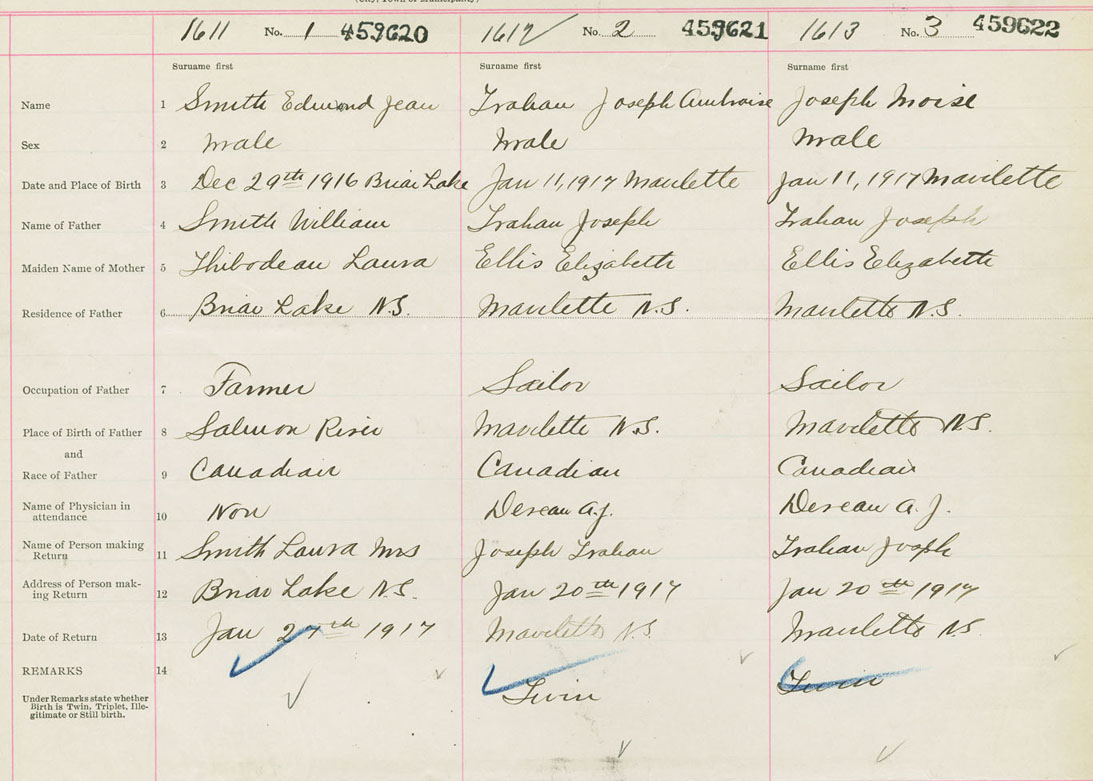 (City, Town or Municipality)
1611 No. 1 459620 1612 No. 2 459621 1613 No. 3 459622
Surname first Surname first Surname first
Name 1 Smith Edmond Jean Trahan Joseph Ambroise Joseph Moise
Sex 2 Male Male Male
Date and Place of Birth 3 Dec 29th 1916 Briar Lake Jan 11, 1917 Mavilette Jan 11, 1917 Mavilette
Name of Father 4 Smith William Trahan Joseph Trahan Joseph
Maiden Name of Mother 5 Thibodeau Laura Ellis Elizabeth Ellis Elizabeth
Residence of Father 6 Briar Lake N.S. Mavilette N.S. Mavilette N.S.
Occupation of Father 7 Farmer Sailor Sailor
Place of Birth of Father 8 Salmon River Mavilette N.S. Mavilette N.S.
and
Race of Father 9 Canadian Canadian Canadian
Name of Physician in
attendance 10 Non Deveau A.J. Deveau A.J.
Name of Person making
Return 11 Smith Laura Mrs Joseph Trahan Trahan Joseph
Address of Person mak-
ing Return 12 Briar Lake N.S. Jan 20th 1917 Jan 20th 1917
Date of Return 13 Jan 27th 1917 Mavilette N.S. Mavilette N.S.
REMARKS 14
Twin Twin
Under Remarks state whether
Birth is Twin, Triplet, Ille-
gitimate or Still birth.